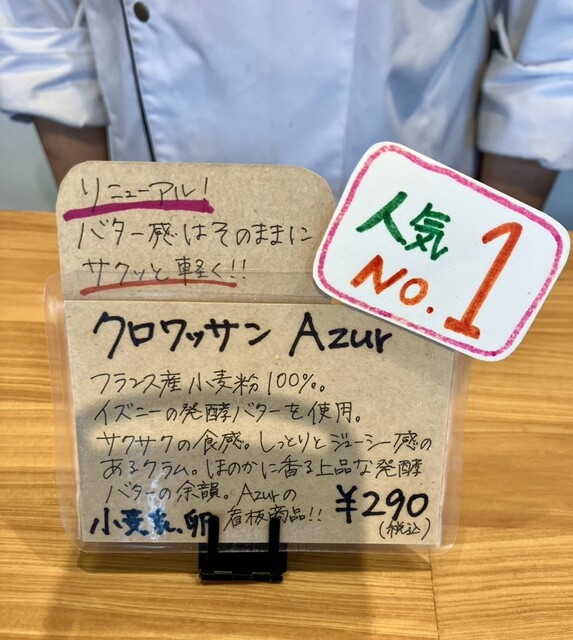 リニューアル!
バター感はそのままに
サクッと軽く!!
人気
NO.1
クロワッサン Azur
フランス産小麦粉100%。
イズニーの発酵バターを使用。
サクサクの食感。しっとりとジューシー感の
あるクラム。ほのかに香る上品な発酵
バターの余韻。Azurの
看板商品!! ¥290
小麦、乳、卵 (税込)